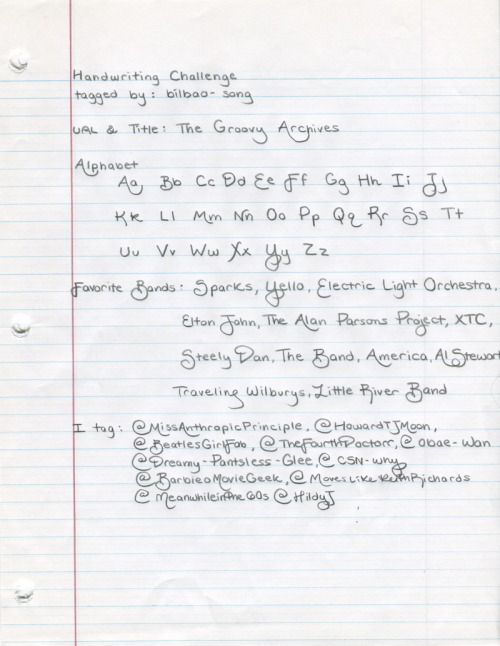 Handwriting Challenge
tagged by: bilbao-song
URL & Title: The Groovy Archives
Alphabet
Aa Bb Cc Dd Ee Ff Gg Hh Ii Jj
Kk Ll Mm Nn Oo Pp Qq Rr Ss Tt
Uu Vv Ww Xx Yy Zz
Favorite Bands: Sparks, Yello, Electric Light Orchestra,
Elton John, The Alan Parsons Project, XTC,
Steely Dan, The Band, America, Al Stewart
Traveling Wilburys, Little River Band
I tag: @MissAnthropicPrinciple, @HowardTJMoon,
@BeatlesGirlFab, @TheFourthDoctorr, @Obae-Wan
@Dreamy-Pantsless-Glee, @CSN-why
@BarbieoMovieGeek, @MovesLikeKeithRichards
@Meanwhileinthe60s @HildyJ